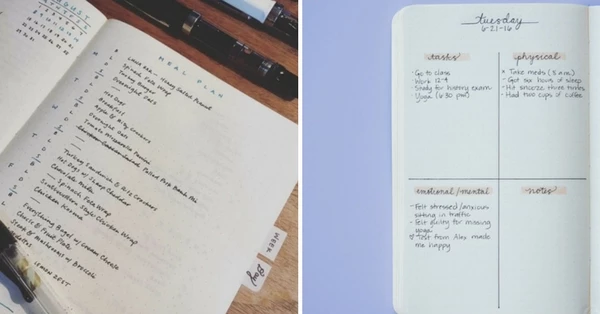 AUGUST
MEAL PLAN
Spinach Feta Wrap
Turkey Burger
Overnight Oats
Hot Dogs
Breakfast
Apple & Ritz Crackers
Tomato Mozzarella Panini
Pulled Pork
Turkey Sandwich & Ritz Crackers
Hot Dogs w/ Sharp Cheddar
Chocolate Muffin
Spinach Feta Wrap
Southwestern Style Chicken Wrap
Chicken Korma
Everything Bagel w/ Cream Cheese
Cheese & Fruit Plate
Steak & Mushrooms w/ Broccoli
LEMON ZEST
WEEK
tuesday
6-21-16
tasks
- Go to class
- Work 12-4
- Study for history exam
- Yoga (6:30 pm)
physical
x Take meds (8 am)
- Got six hours of sleep
- Hit snooze three times
- Had two cups of coffee
emotional/mental
- Felt stressed/anxious
sitting in traffic
- Felt guilty for missing
yoga
♡ Text from Alex made
me happy
notes